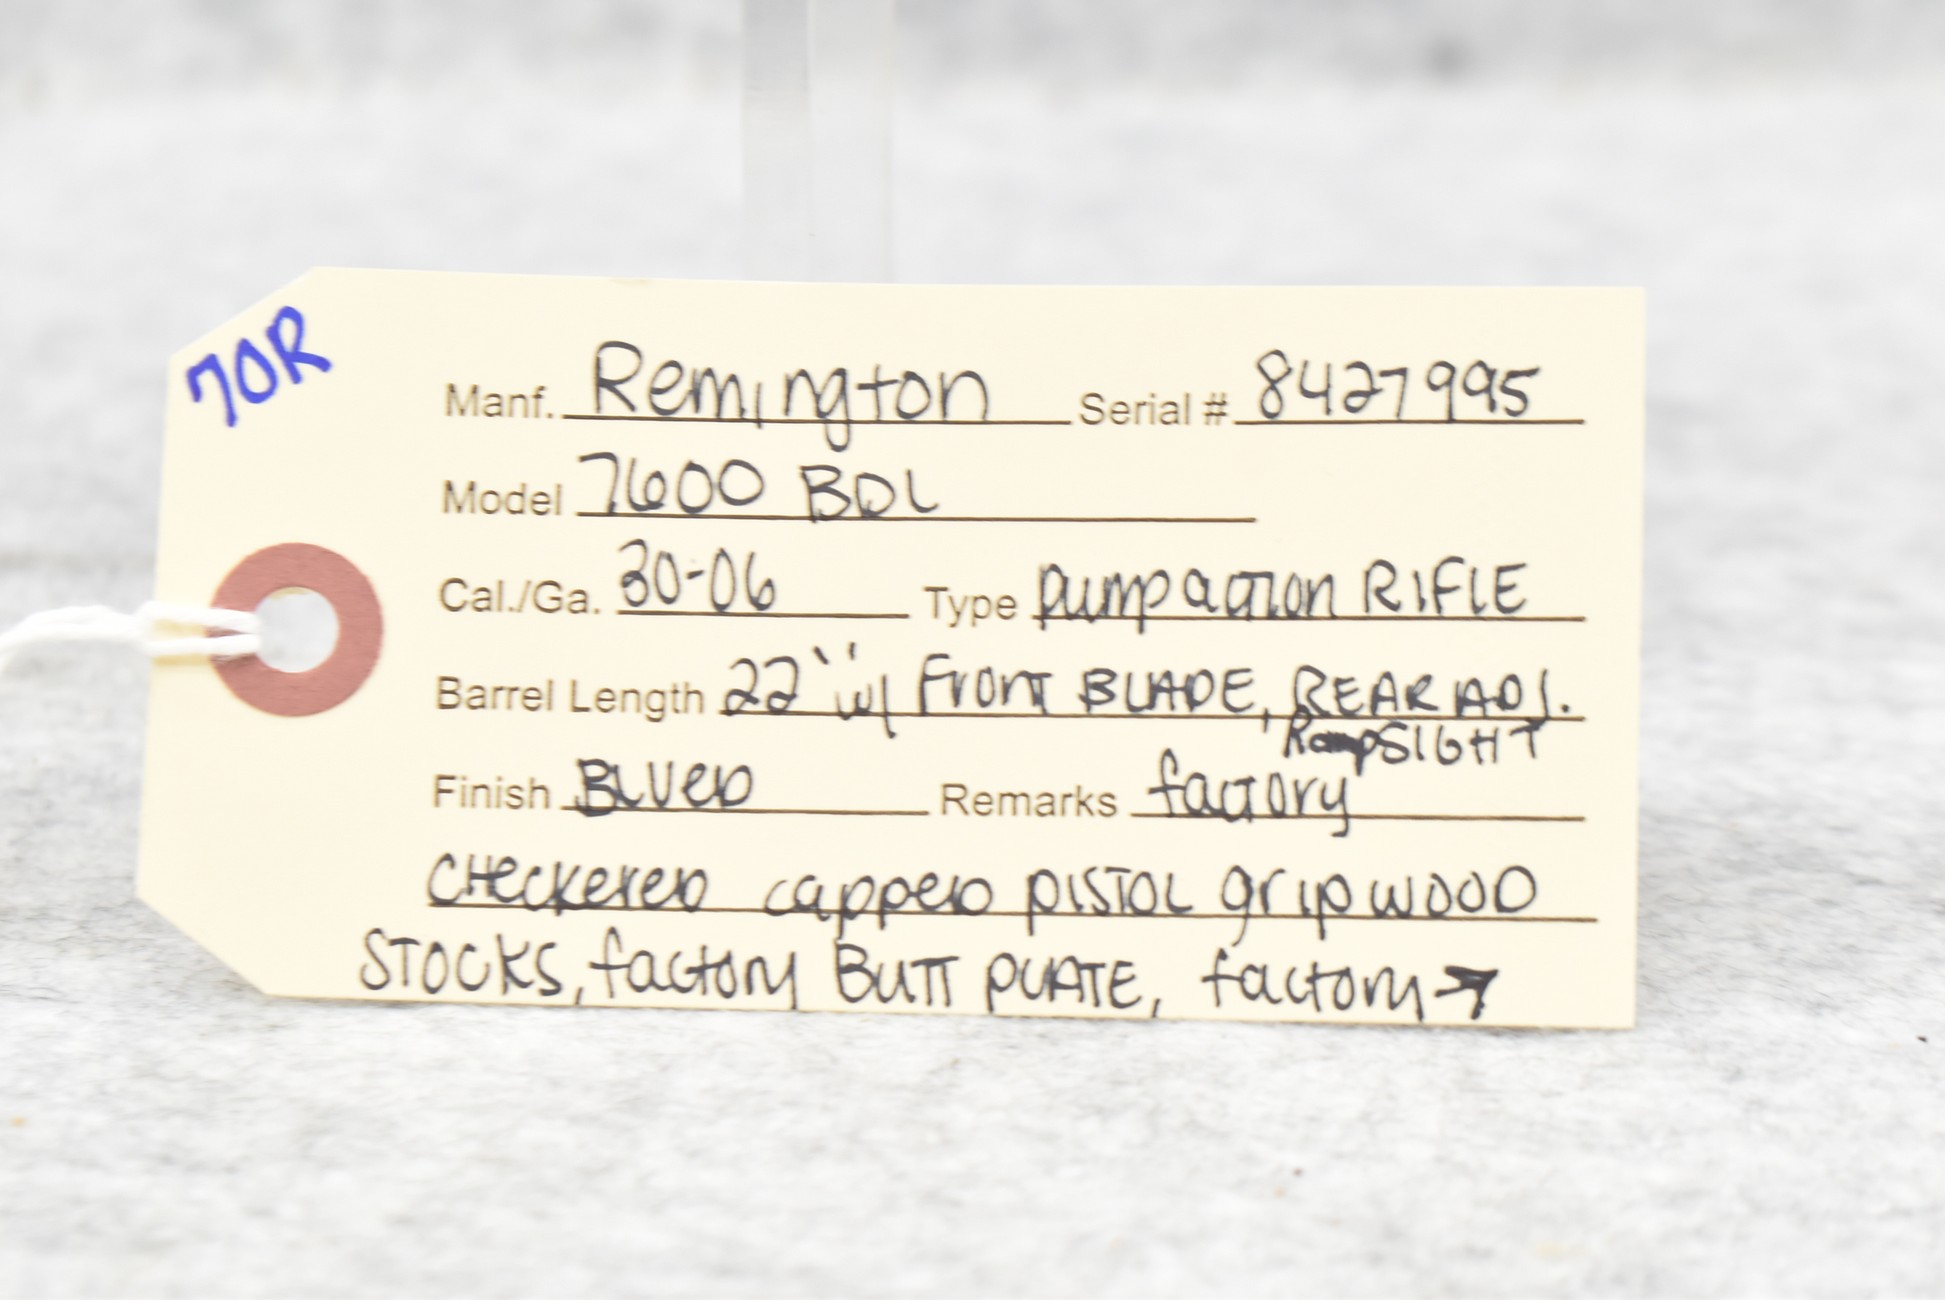 70R
Manf. Remington Serial # 8427995
Model 7600 BDL
Cal./Ga. 30-06 Type pump action RIFLE
Barrel Length 22" w/ Front BLADE, REAR ADJ.
Ramp SIGHT
Finish BLUED Remarks factory
CHeckered capped PISTOL grip wood
STOCKS, factory BUTT PLATE, factory →